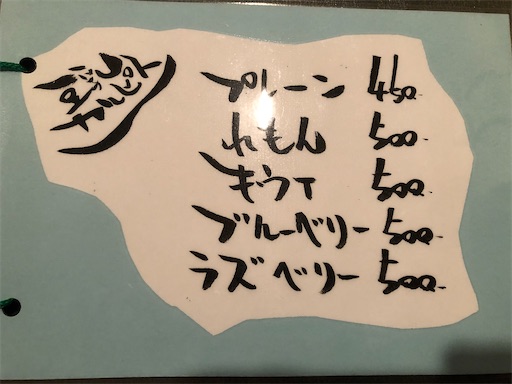 プレーン 450.
れもん 500.
キウイ 500.
ブルーベリー 500.
ラズベリー 500.